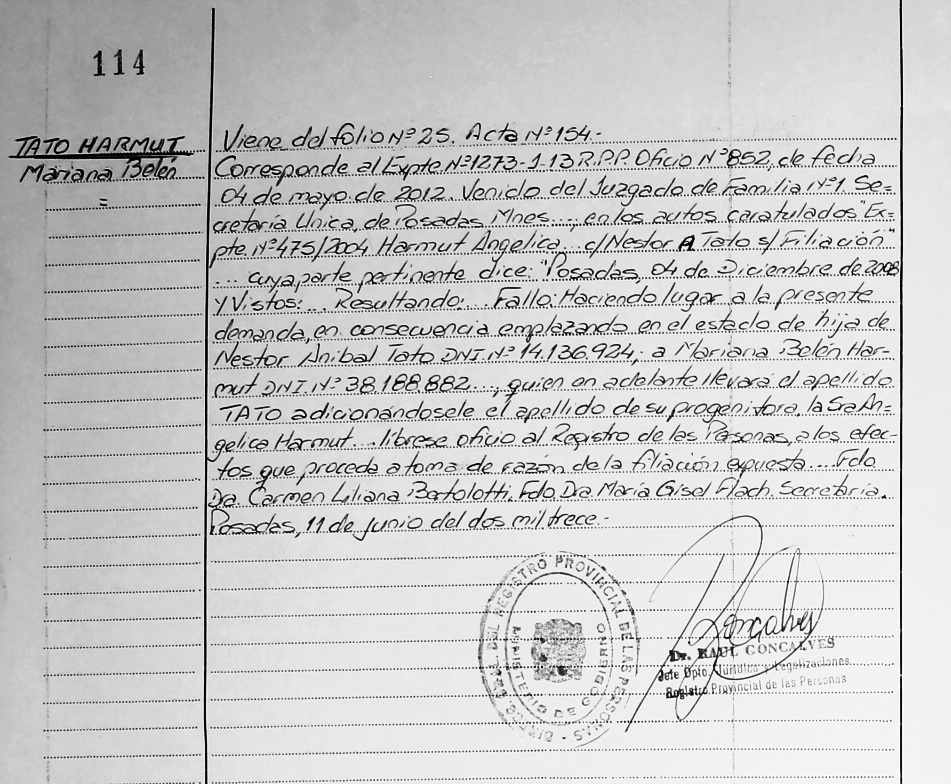 114
TATO HARMUT
Mariana Belén
=
Viene del folio Nº 25. Acta Nº 154.-
Corresponde al Expte Nº 1273-1-13 R.P.P. Oficio Nº 852, de fecha
04 de mayo de 2012. Venido del Juzgado de Familia Nº 1. Se=
cretaría Unica, de Posadas, Mnes..., en los autos caratulados "Ex=
pte. Nº 475/2004 Harmut Angelica... c/ Nestor A Tato s/ Filiación"
... cuya parte pertinente dice: "Posadas, 04 de Diciembre de 2008
Y Vistos:... Resultando:... Fallo: Haciendo lugar a la presente
demanda, en consecuencia emplazando en el estado de hija de
Nestor Anibal Tato DNI. Nº 14.136.924, a Mariana Belén Har=
mut DNI. Nº 38.188.882..., quien en adelante llevará el apellido
TATO adicionándosele el apellido de su progenitora, la Sra An=
gelica Harmut... líbrese oficio al Registro de las Personas, a los efec-
tos que proceda a toma de razón de la filiación expuesta... Fdo
Dra. Carmen Liliana Bortolotti. Fdo. Dra. María Gisel Flach. Secretaria.
Posadas, 11 de junio del dos mil trece.-
REGISTRO PROVINCIAL DE LAS PERSONAS
MINISTERIO DE GOBIERNO
Gonçalves
Dr. RAUL GONCALVES
Jefe Dpto. Jurídico y Legalizaciones
Registro Provincial de las Personas